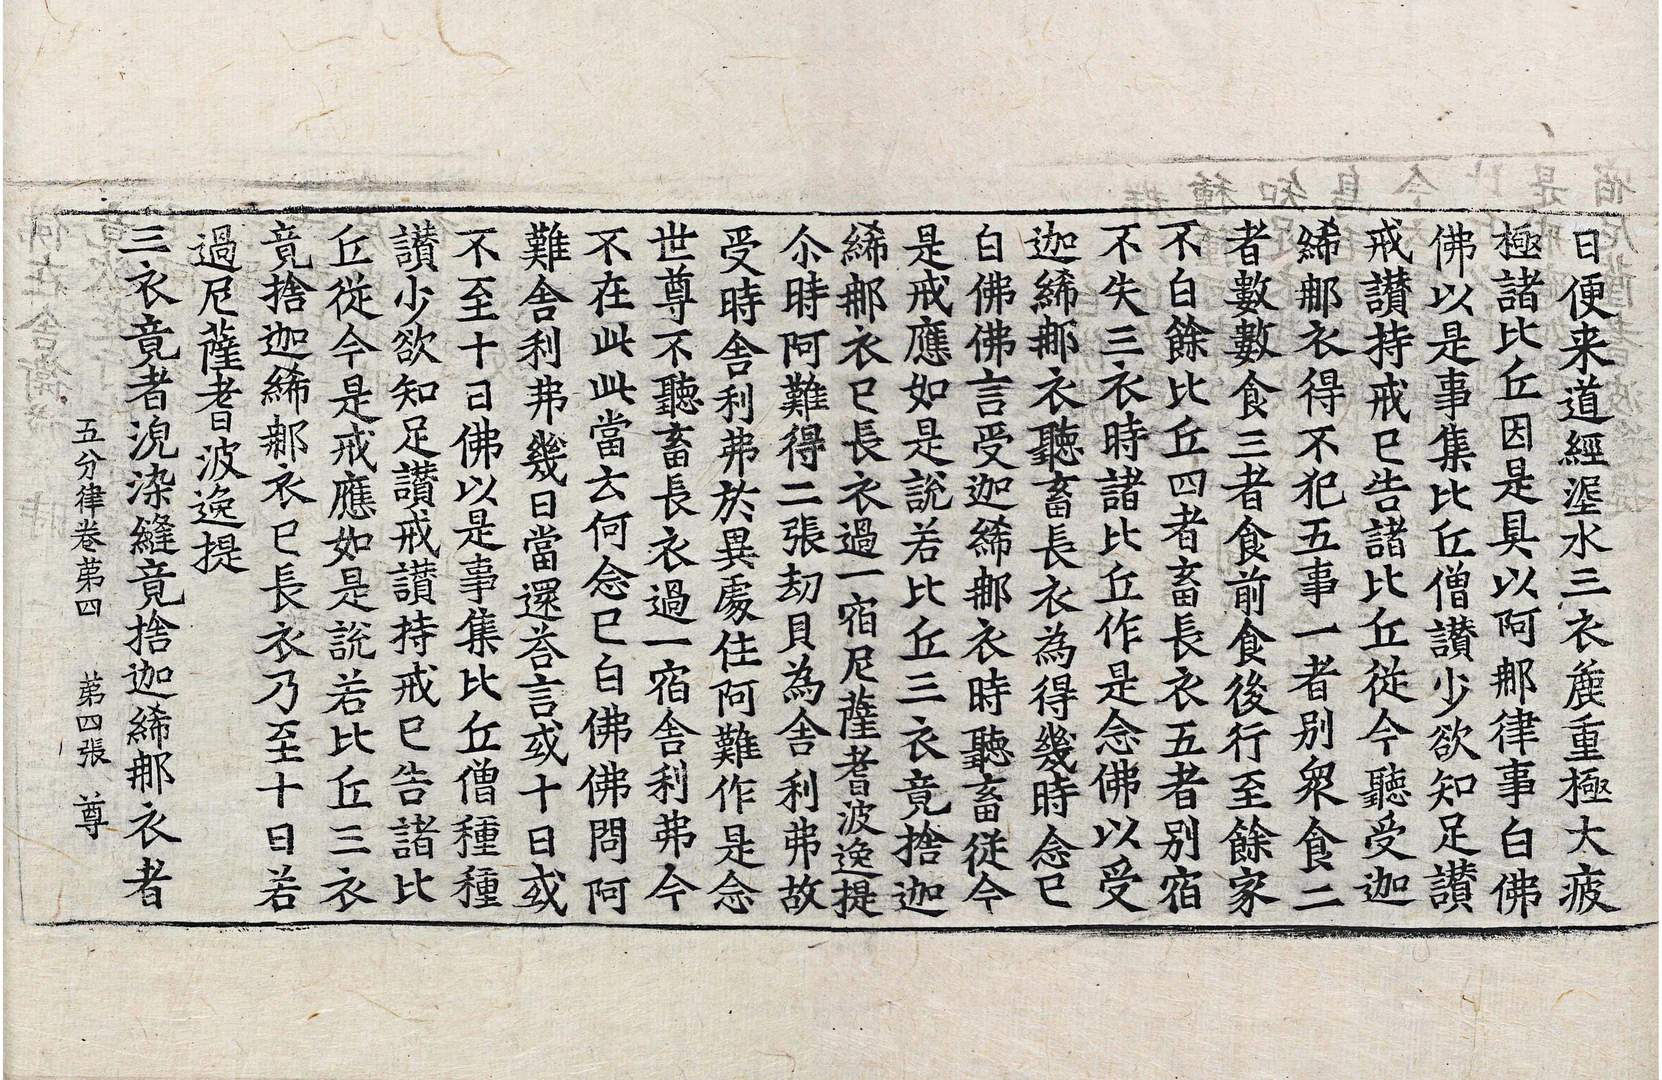 日便来道經渥水三衣麁重極大疲
極諸比丘因是具以阿㨙律事白佛
佛以是事集比丘僧讃少欲知足讃
戒讃持戒已告諸比丘従今聽受迦
絺㨙衣得不犯五事一者别衆食二
者數數食三者食前食後行至餘家
不白餘比丘四者畜長衣五者别宿
不失三衣時諸比丘作是念佛以受
迦絺㨙衣聽畜長衣為得幾時念已
白佛佛言受迦絺㨙衣時聽畜従今
是戒應如是説若比丘三衣竟捨迦
絺㨙衣已長衣過一宿尼薩耆波逸提
尒時阿難得二張劫貝為舍利弗故
受時舍利弗於異處住阿難作是念
世尊不聽畜長衣過一宿舍利弗今
不在此此當云何念已白佛佛問阿
難舍利弗幾日當還荅言或十日或
不至十日佛以是事集比丘僧種種
讃少欲知足讃戒讃持戒已告諸比
丘従今是戒應如是説若比丘三衣
竟捨迦絺㨙衣已長衣乃至十日若
過尼薩耆波逸提
三衣竟者浣染縫竟捨迦絺㨙衣者
五分律卷苐四 苐四張 尊